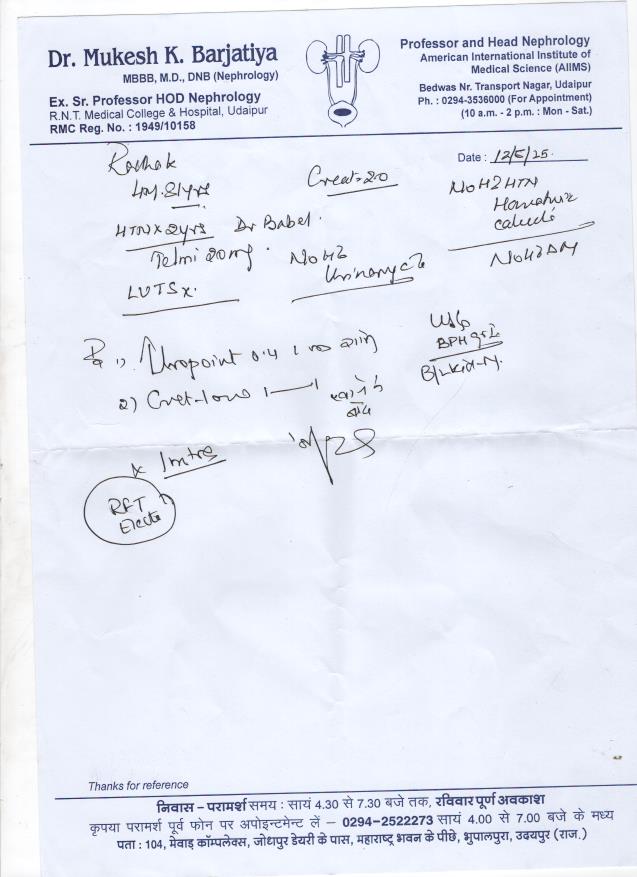 Dr. Mukesh K. Barjatiya
MBBB, M.D., DNB (Nephrology)
Ex. Sr. Professor HOD Nephrology
R.N.T. Medical College & Hospital, Udaipur
RMC Reg. No. : 1949/10158
Professor and Head Nephrology
American International Institute of
Medical Science (AIIMS)
Bedwas Nr. Transport Nagar, Udaipur
Ph. : 0294-3536000 (For Appointment)
(10 a.m. - 2 p.m. : Mon - Sat.)
Date : 12/5/25.
81yrs
Creat-2.0
No H/o HTN
HTN x 2yrs Dr Babel.
Telmi 20mg. No H/o
LUTS x.
No H/o DM
1) 0.4
USG
BPH gr I
2) 1—1
खाने के
बाद
x 1 mth
RFT
Thanks for reference
निवास – परामर्श समय : सायं 4.30 से 7.30 बजे तक, रविवार पूर्ण अवकाश
कृपया परामर्श पूर्व फोन पर अपोइन्टमेन्ट लें – 0294-2522273 सायं 4.00 से 7.00 बजे के मध्य
पता : 104, मेवाड़ कॉम्पलेक्स, जोधपुर डेयरी के पास, महाराष्ट्र भवन के पीछे, भुपालपुरा, उदयपुर (राज.)